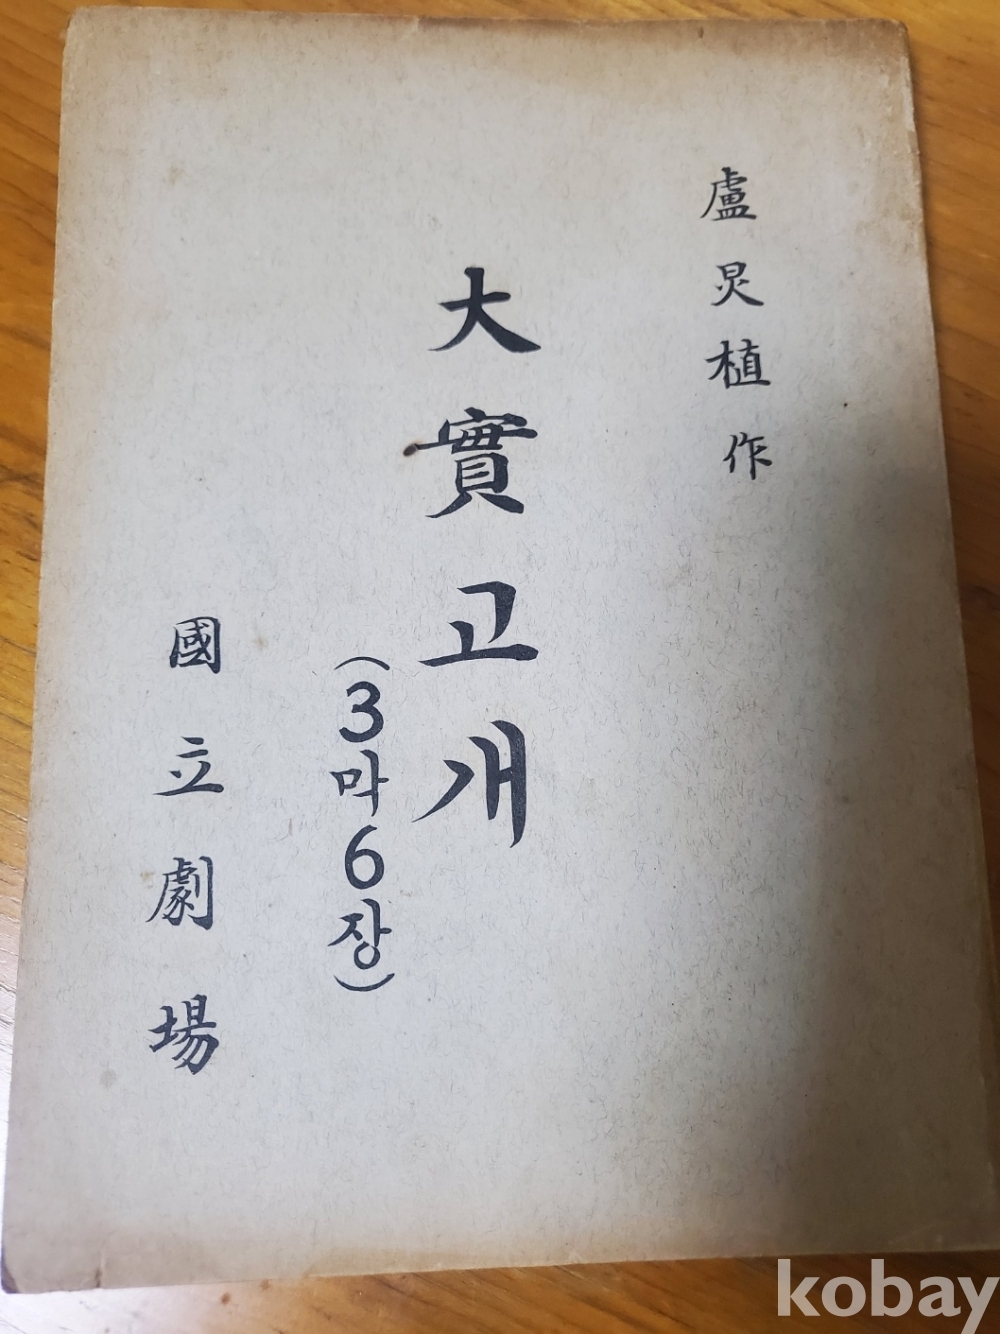 盧炅植 作
大實고개
(3마6장)
國立劇場
kobay